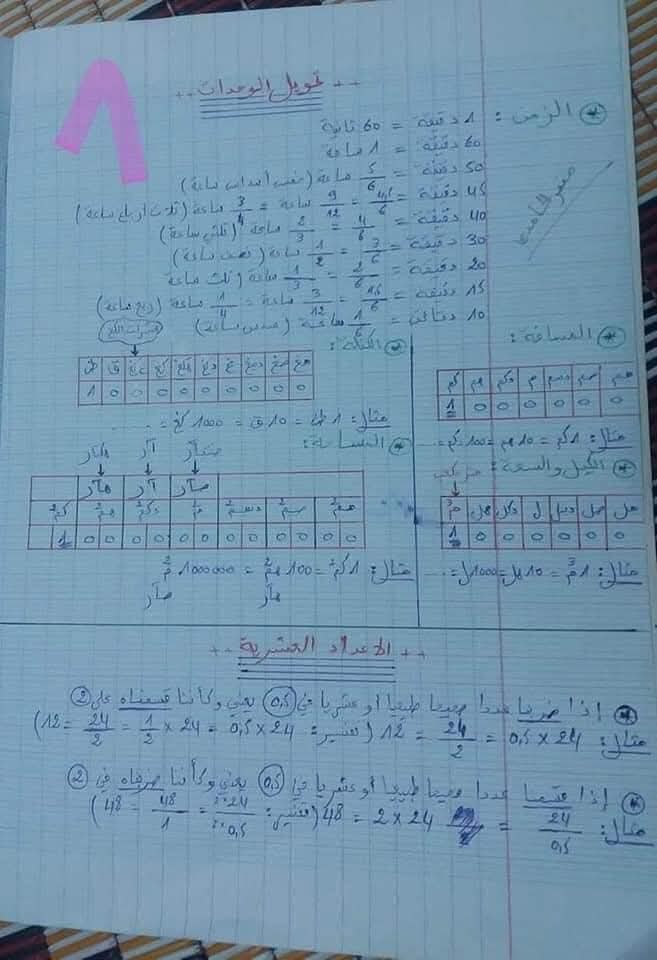 ++ تحويل الوحدات ++
* الزمن : 1 دقيقة = 60 ثانية
60 دقيقة = 1 ساعة
50 دقيقة = 5/6 ساعة (خمس أسداس ساعة)
45 دقيقة = 4,5/6 = 9/12 ساعة = 3/4 ساعة (ثلاث أرباع ساعة)
40 دقيقة = 4/6 = 2/3 ساعة (ثلثي ساعة)
30 دقيقة = 3/6 = 1/2 ساعة (نصف ساعة)
20 دقيقة = 2/6 = 1/3 ساعة (ثلث ساعة
15 دقيقة = 1,5/6 = 3/12 ساعة = 1/4 ساعة (ربع ساعة)
10 دقائق = 1/6 ساعة (سدس ساعة)
* المسافة :
كم هم دكم م دسم صم مم
1 0 0 0 0 0 0
مثال : 1 كم = 10 هم = 100 دكم = ...
* الكتلة :
ط ق كغ هكغ دغ غ دسغ صغ مغ
1 0 0 0 0 0 0 0 0 0
مثال : 1 ط = 10 ق = 1000 كغ = ....
* الكيل والسعة :
متر مكعب
م3 هل دكل ل دسل صل مل
1 0 0 0 0 0 0
مثال : 1 م3 = 10 هل = 1000 ل = ...
* المساحة :
هكتار آر صنتآر
هآر آر صآر
كم2 هم2 دكم2 م2 دسم2 صم2 مم2
1 0 0 0 0 0 0 0 0 0 0 0 0
مثال : 1 كم2 = 100 هم2 = 1000000 م2
هآر صآر
++ الأعداد العشرية ++
* إذا ضربنا عددا صحيحا طبيعيا أو عشريا في 0,5 يعني وكأننا قسمناه على 2
مثال : 24 × 0,5 = 24/2 = 12 (تفسير : 24 × 0,5 = 24 × 1/2 = 24/2 = 12)
* إذا قسمنا عددا صحيحا طبيعيا أو عشريا في 0,5 يعني وكأننا ضربناه في 2
مثال : 24/0,5 = 24 × 2 = 48 (تفسير : 24/0,5 = 48/1 = 48)